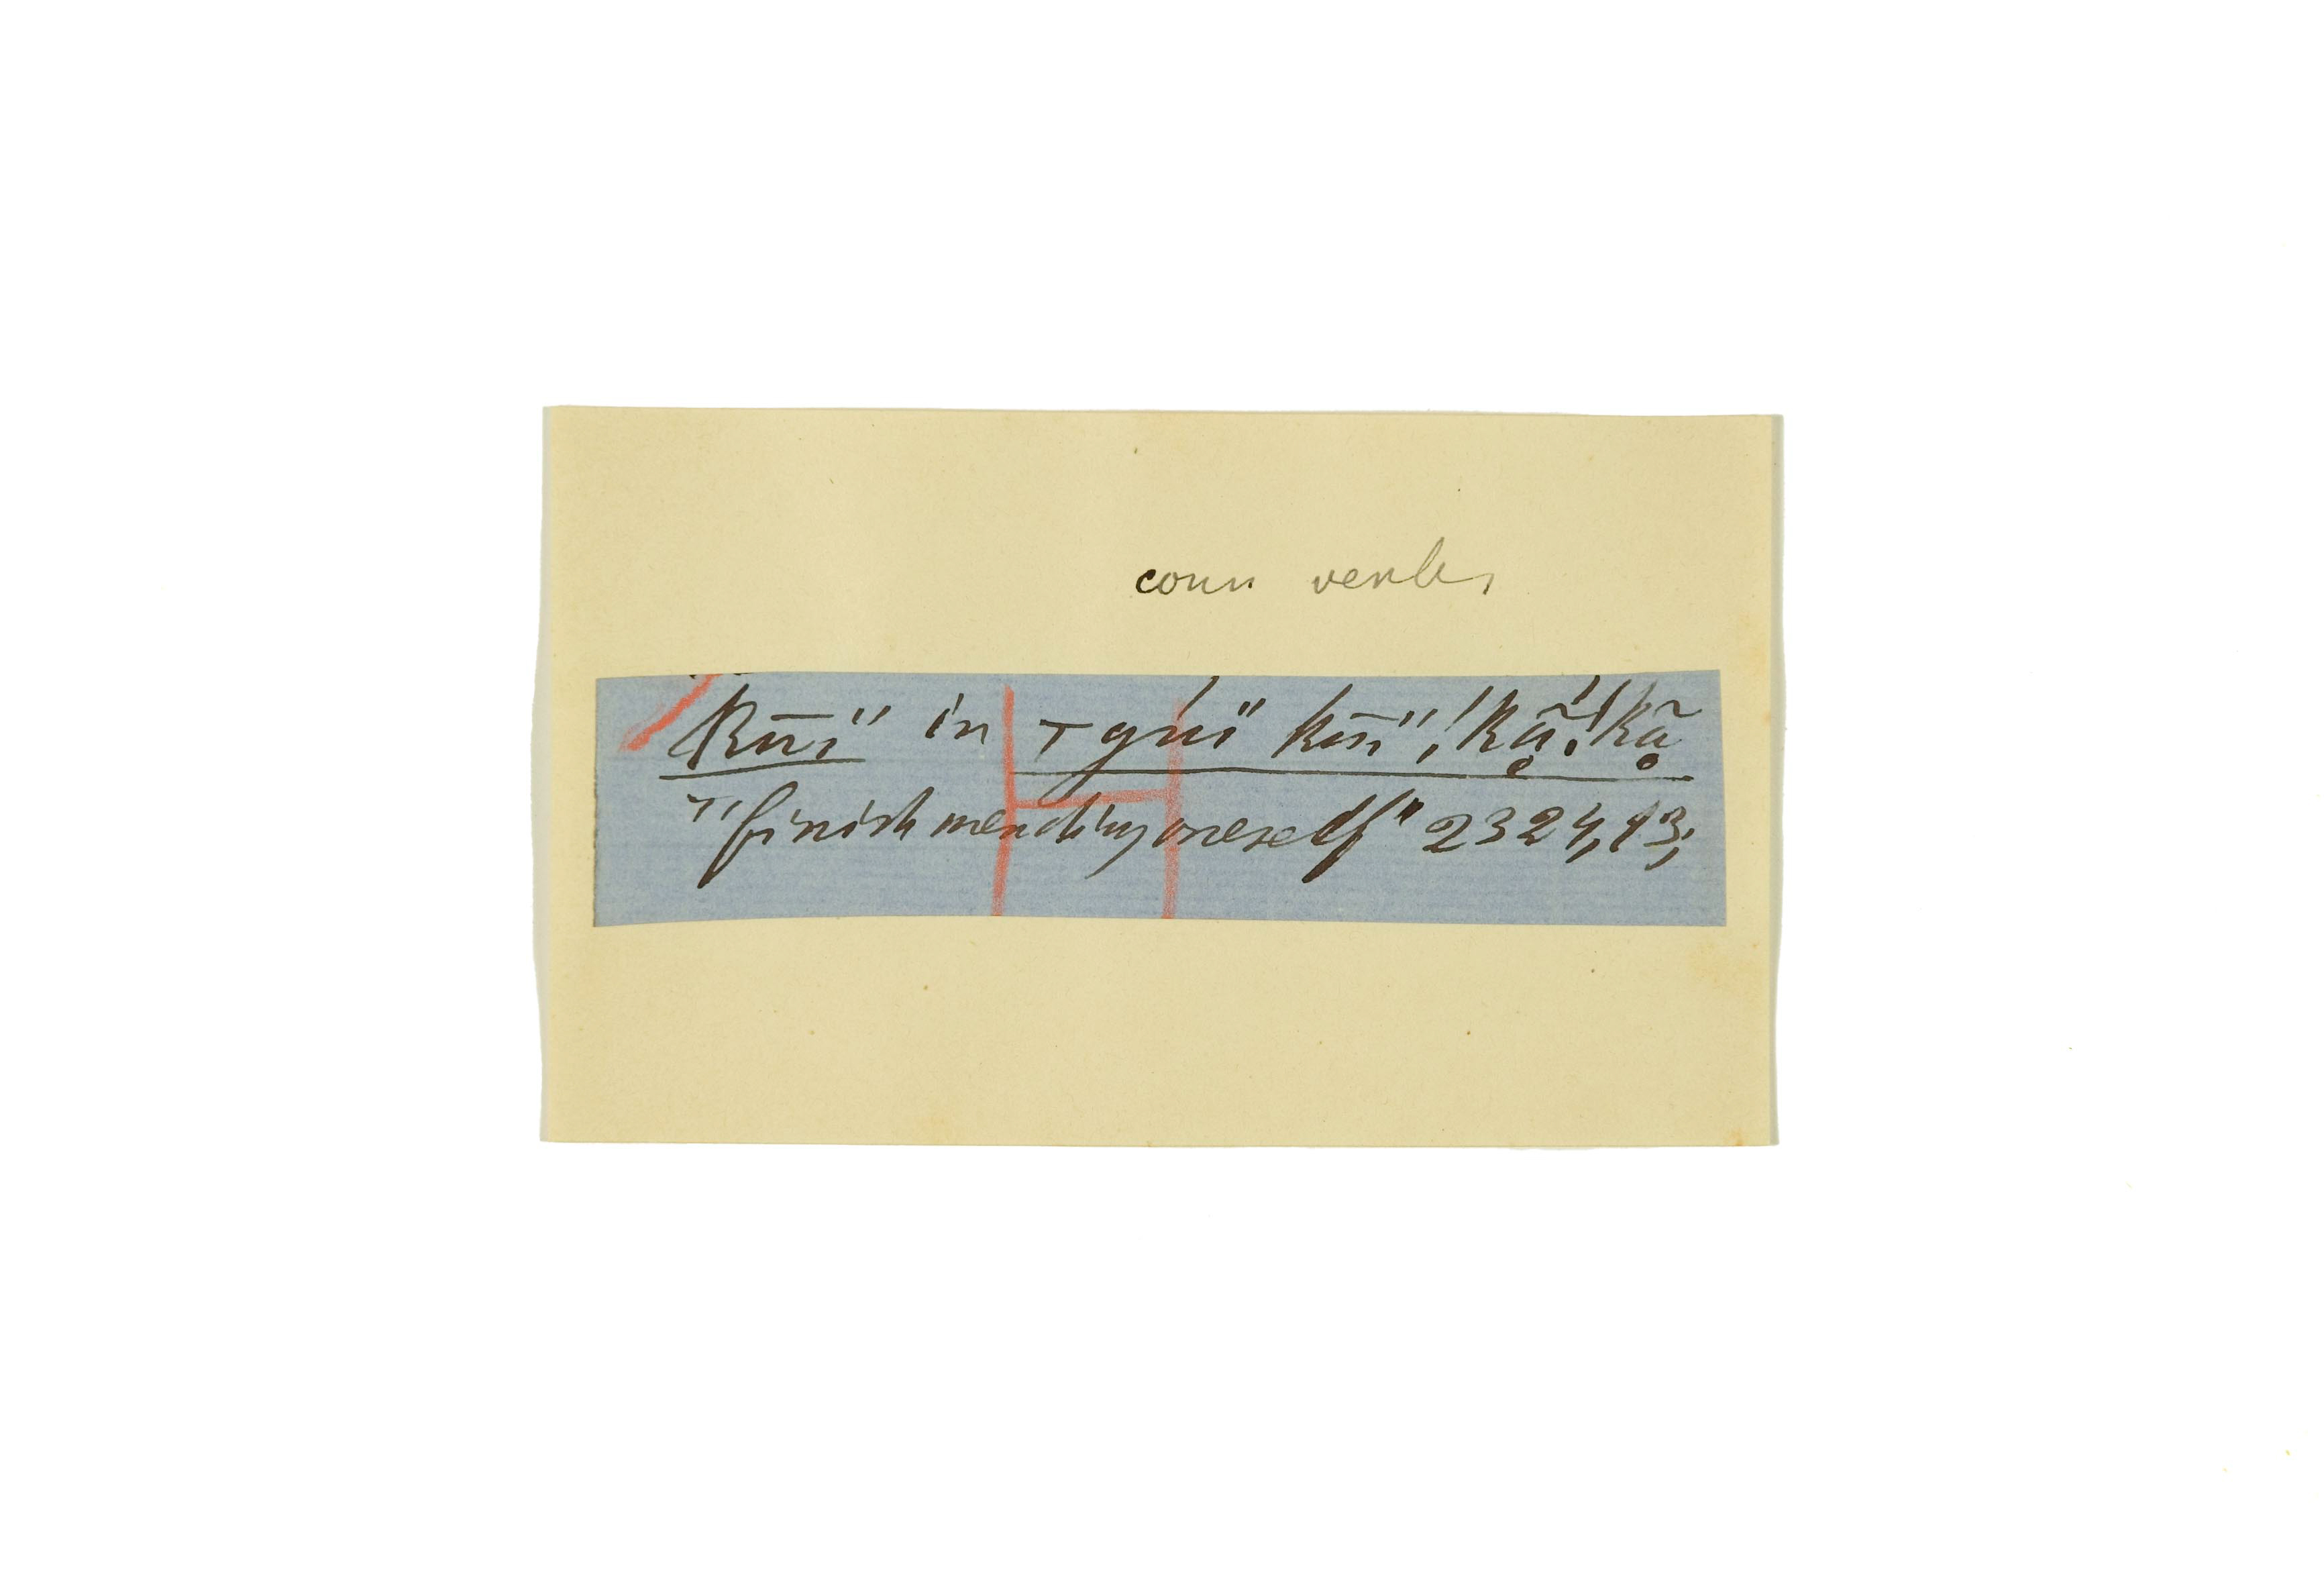 conn verbs
k̄ui" in ⊤ gui" kui", !kã̰ !kã̰
⊤ "finish mending oneself" 2324,13;